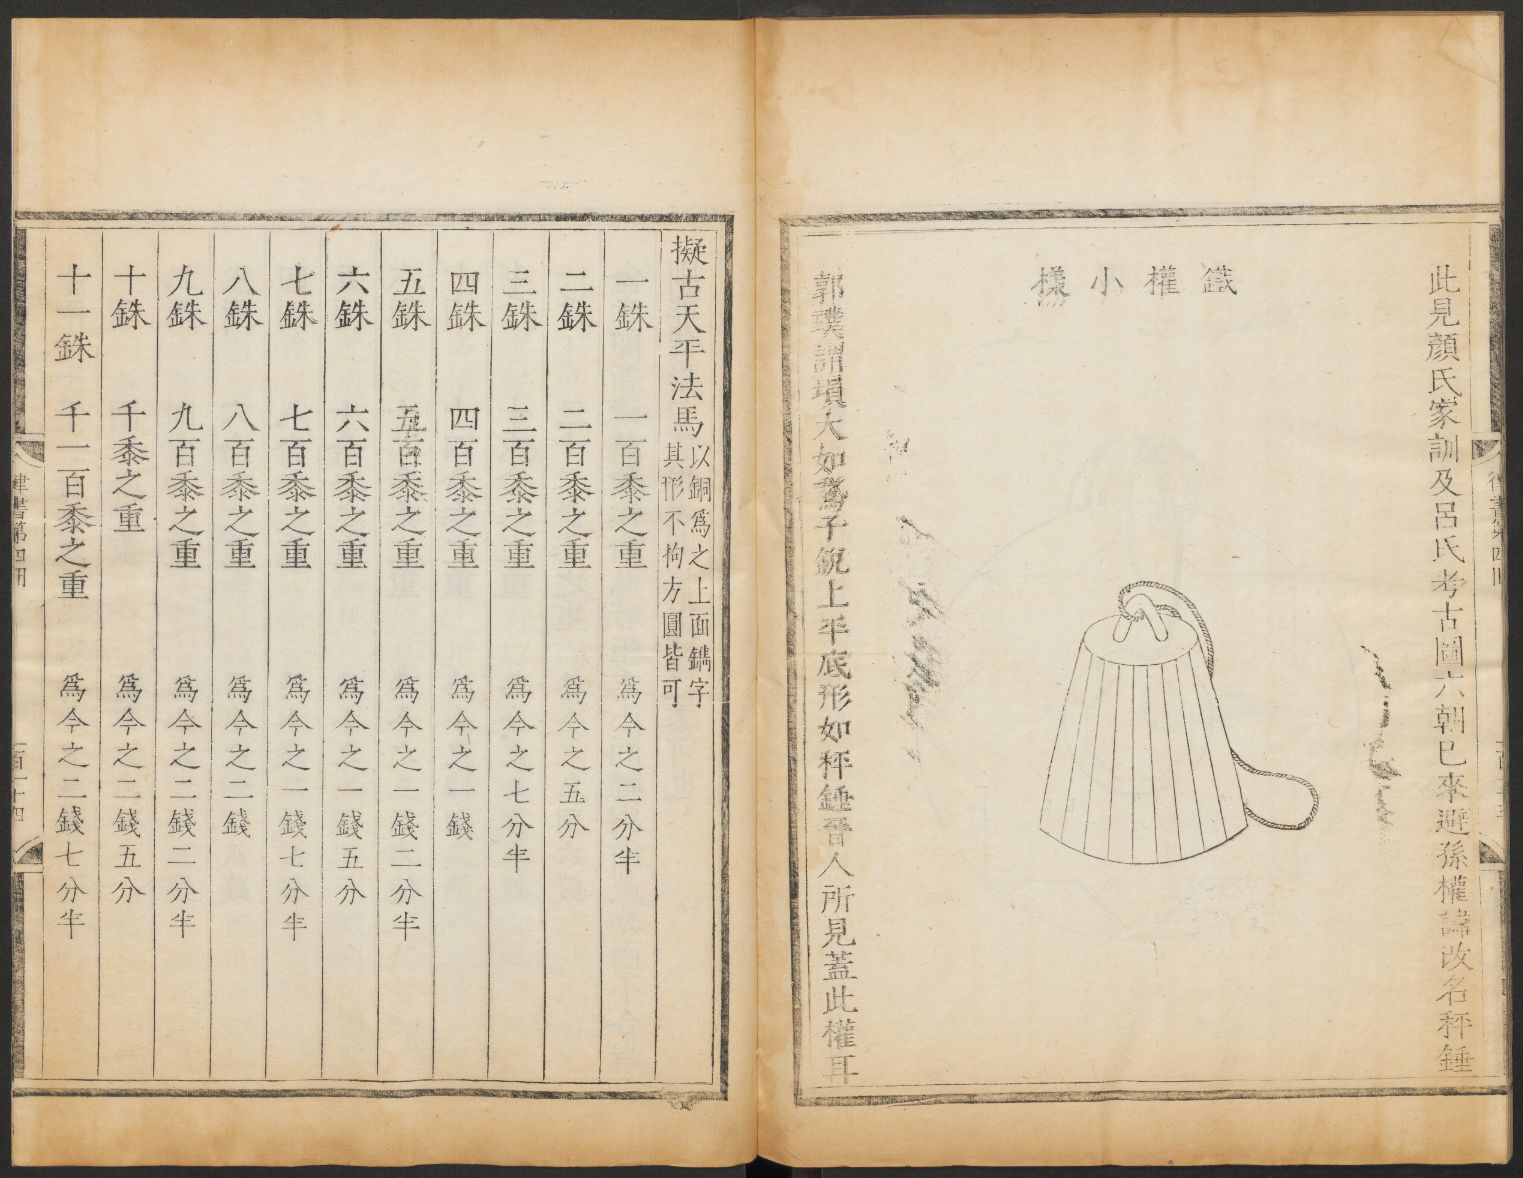 此見顏氏家訓及呂氏考古圖六朝已來避孫權諱改名秤錘
鐵權小樣
郭璞謂塤大如鵞子銳上平底形如秤錘晉人所見蓋此權耳
擬古天平法馬以銅爲之上面鐫字
其形不拘方圓皆可
一銖 一百黍之重 爲今之二分半
二銖 二百黍之重 爲今之五分
三銖 三百黍之重 爲今之七分半
四銖 四百黍之重 爲今之一錢
五銖 五百黍之重 爲今之一錢二分半
六銖 六百黍之重 爲今之一錢五分
七銖 七百黍之重 爲今之一錢七分半
八銖 八百黍之重 爲今之二錢
九銖 九百黍之重 爲今之二錢二分半
十銖 千黍之重 爲今之二錢五分
十一銖 千一百黍之重 爲今之二錢七分半